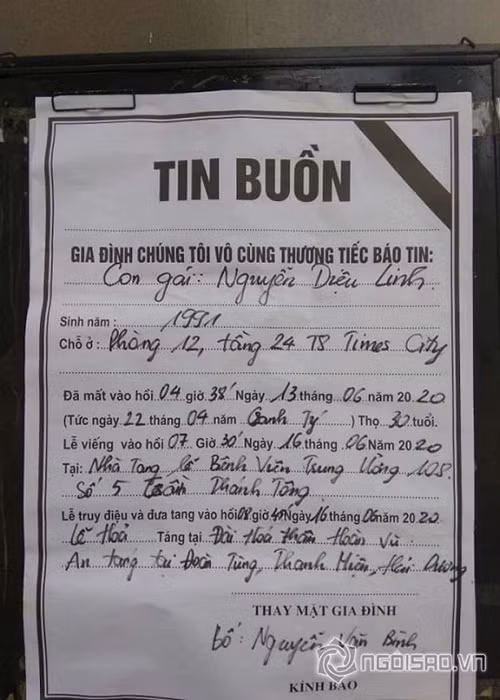 TIN BUỒN
GIA ĐÌNH CHÚNG TÔI VÔ CÙNG THƯƠNG TIẾC BÁO TIN:
Con gái: Nguyễn Diệu Linh
Sinh năm: 1991
Chỗ ở: Phòng 12, tầng 24 T8 Times City
Đã mất vào hồi 04 giờ 38' Ngày 13 tháng 06 năm 2020
(Tức ngày 22 tháng 04 năm Canh Tý) Thọ 30 tuổi.
Lễ viếng vào hồi 07 Giờ 30' Ngày 16 tháng 06 Năm 2020
Tại: Nhà Tang lễ Bệnh Viện Trung Ương 108.
Số 5 Trần Thánh Tông
Lễ truy điệu và đưa tang vào hồi 08 giờ 45' Ngày 16 tháng 06 năm 2020
Lễ Hoả Táng tại Đài Hoá thân Hoàn Vũ
An táng tại Đoàn Tùng, Thanh Miện, Hải Dương
THAY MẶT GIA ĐÌNH
bố: Nguyễn Văn Bình
KÍNH BÁO
NGOISAO.VN